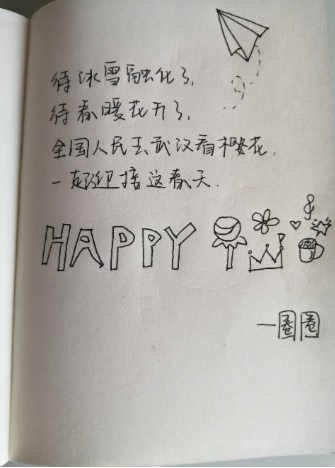 待冰雪融化了,
待春暖花开了,
全国人民去武汉看樱花,
一起迎接这春天.
HAPPY
一圈圈